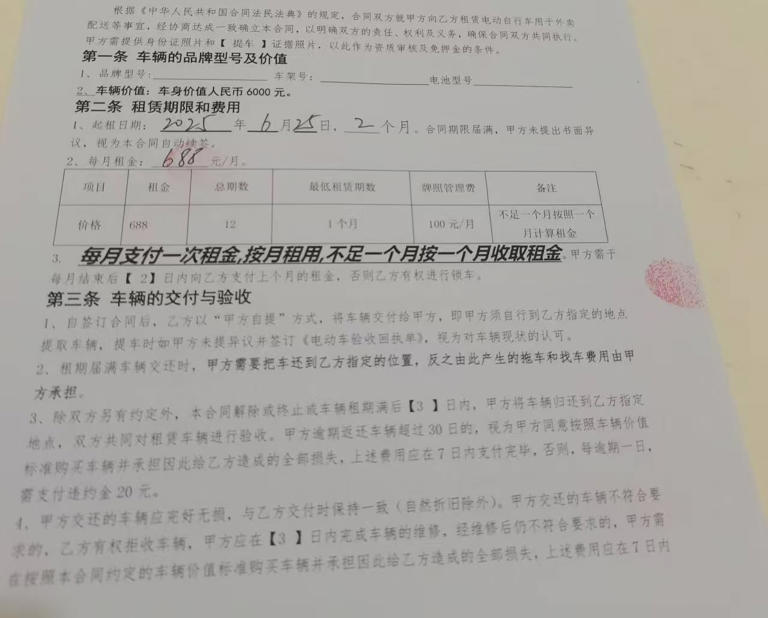 根据《中华人民共和国合同法民法典》的规定，合同双方就甲方向乙方租赁电动自行车用于外卖
配送等事宜，经协商达成一致确立本合同，以明确双方的责任、权利及义务，确保合同双方共同执行。
甲方需提供身份证照片和【 提车 】证据照片，以此作为资质审核及免押金的条件。
第一条 车辆的品牌型号及价值
1、品牌型号: 车架号: 电池型号
2、车辆价值：车身价值人民币 6000 元。
第二条 租赁期限和费用
1、起租日期： 2025 年 6 月 25 日， 2 个月。合同期限届满，甲方未提出书面异
议，视为本合同自动续签。
2、每月租金： 688 元/月。
项目 租金 总期数 最低租赁期数 牌照管理费 备注
价格 688 12 1 个月 100 元/月 不足一个月按照一个
月计算租金
3. 每月支付一次租金,按月租用,不足一个月按一个月收取租金。甲方需于
每月结束后【 2】日内向乙方支付上个月的租金，否则乙方有权进行锁车。
第三条 车辆的交付与验收
1、自签订合同后，乙方以“甲方自提”方式，将车辆交付给甲方，即甲方须自行到乙方指定的地点
提取车辆，提车时如甲方未提异议并签订《电动车验收回执单》，视为对车辆现状的认可。
2、租期届满车辆交还时，甲方需要把车还到乙方指定的位置，反之由此产生的拖车和找车费用由甲
方承担。
3、除双方另有约定外，本合同解除或终止或车辆租期满后【3 】日内，甲方将车辆归还到乙方指定
地点，双方共同对租赁车辆进行验收。甲方逾期返还车辆超过 30 日的，视为甲方同意按照车辆价值
标准购买车辆并承担因此给乙方造成的全部损失，上述费用应在 7 日内支付完毕，否则，每逾期一日，
需支付违约金 20 元。
4、甲方交还的车辆应完好无损，与乙方交付时保持一致（自然折旧除外）。甲方交还的车辆不符合要
求的，乙方有权拒收车辆，甲方应在【3 】日内完成车辆的维修，经维修后仍不符合要求的，甲方需
在按照本合同约定的车辆价值标准购买车辆并承担因此给乙方造成的全部损失，上述费用应在 7 日内